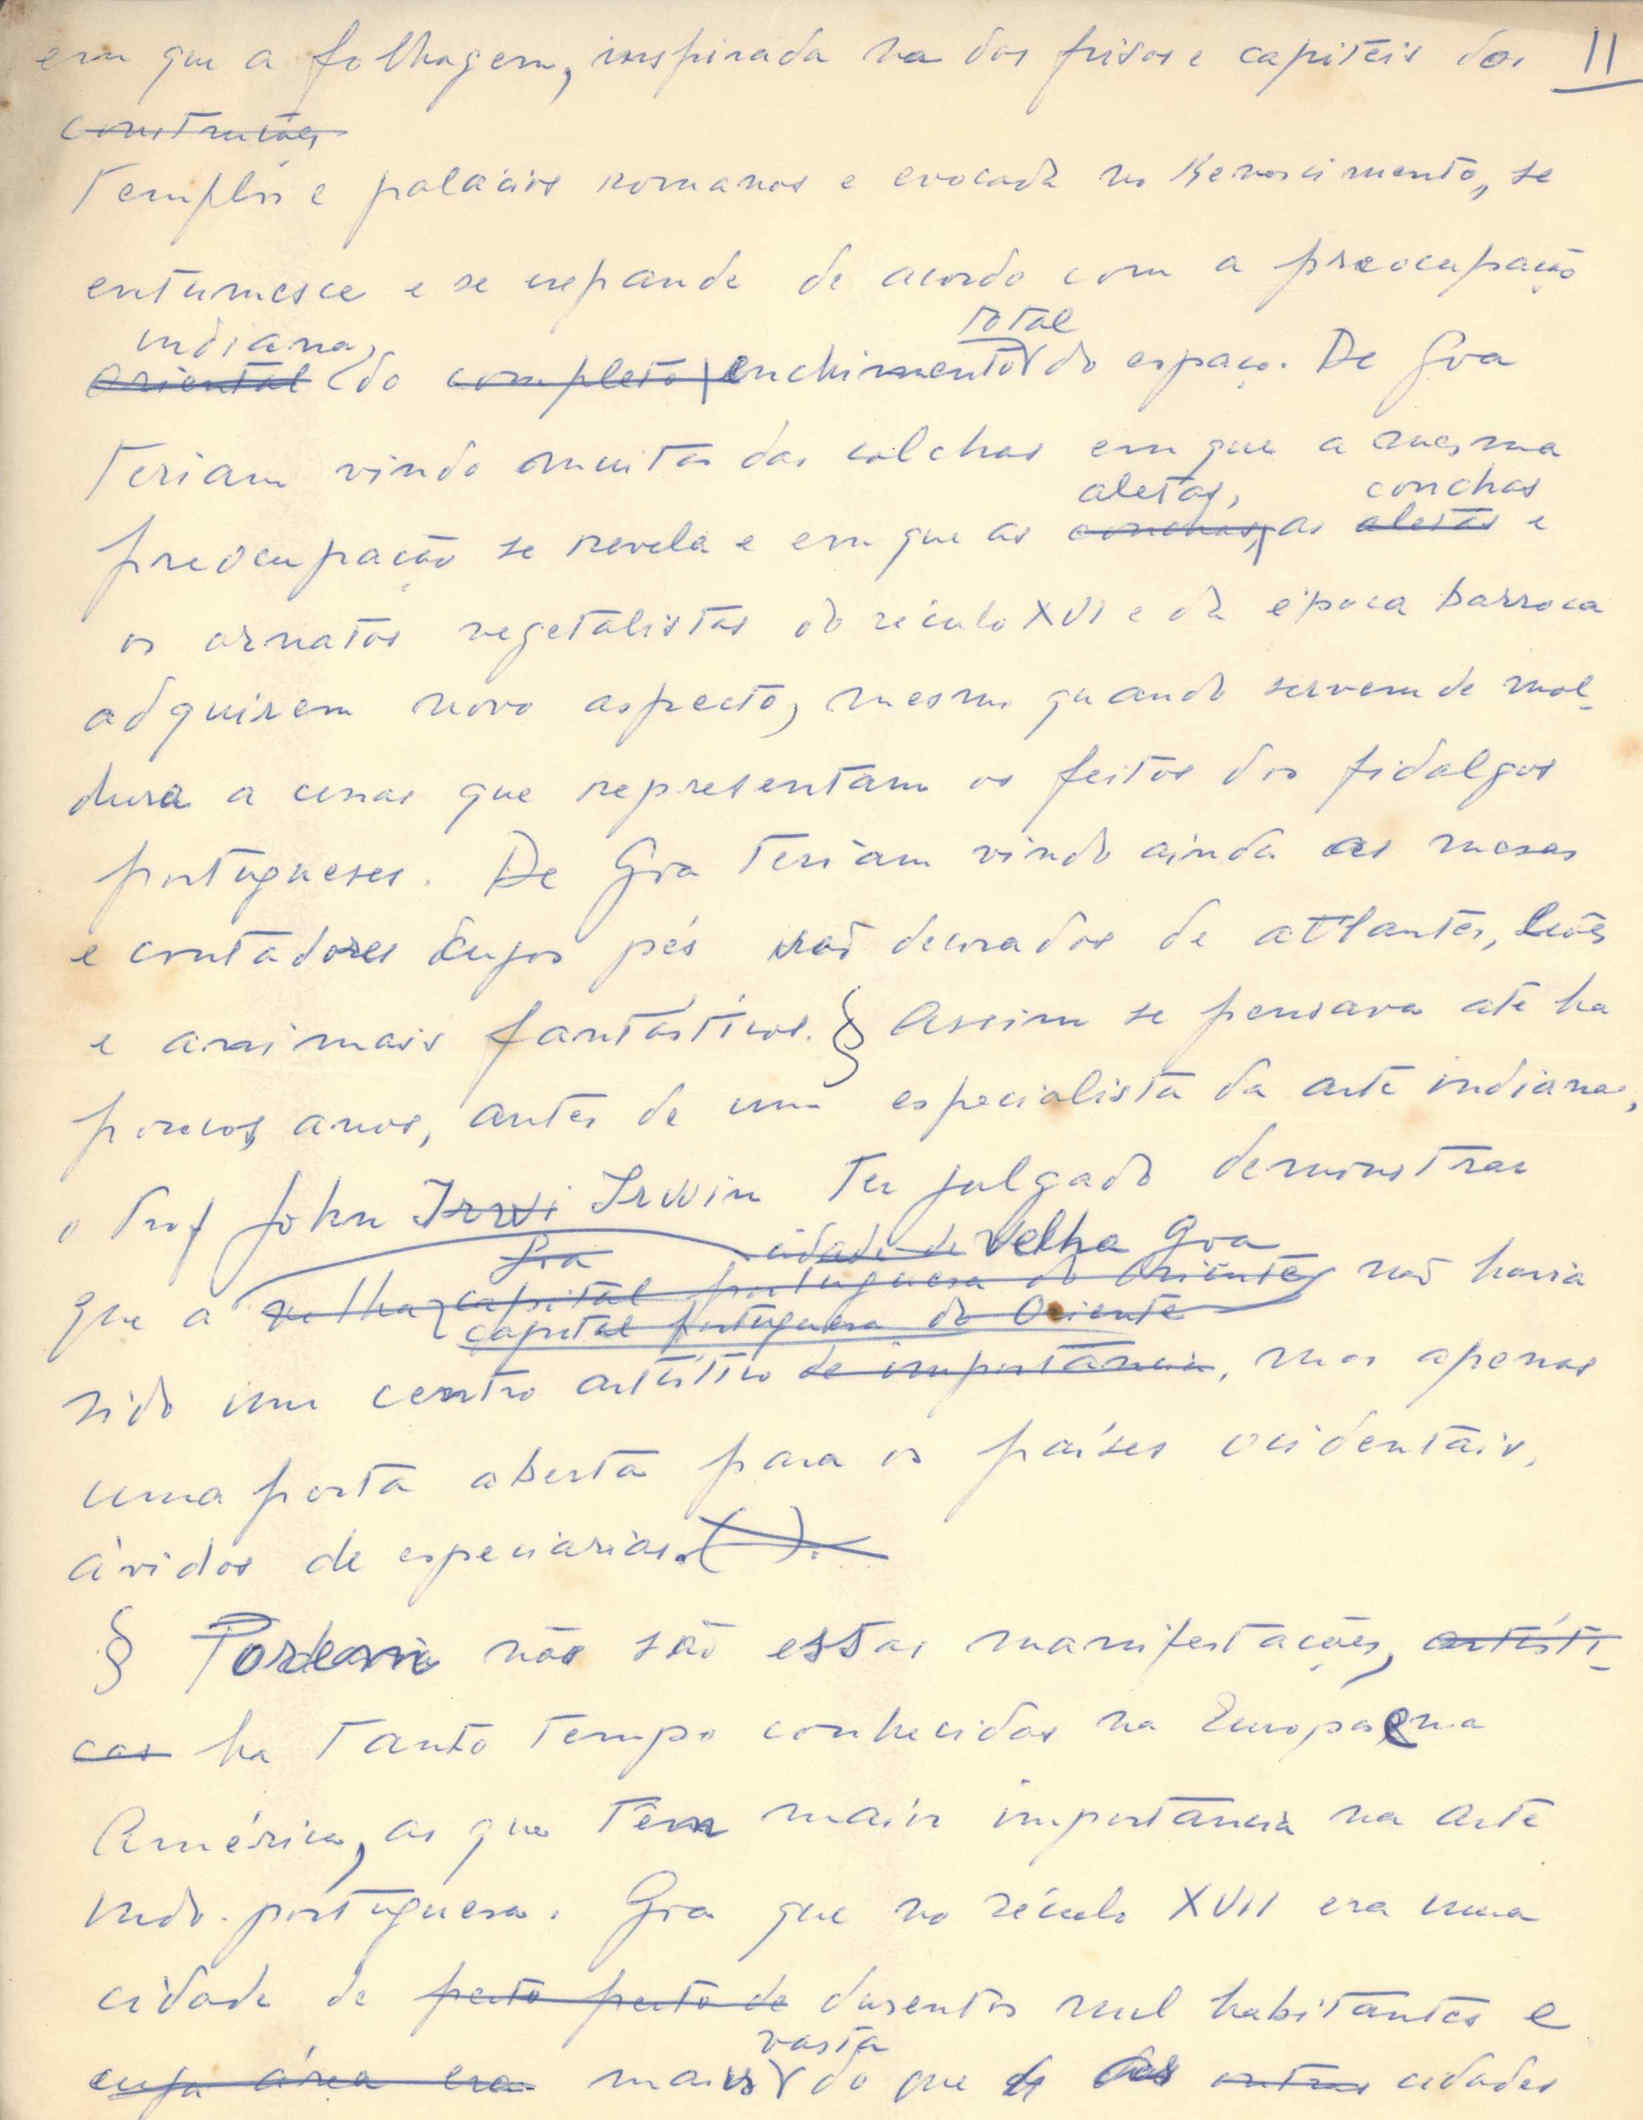 em que a folhagem, inspirada na dos frisos e capiteis dos II
construções
templos e palácios romanos e evocada no Renascimento, se
entumesce e se expande de acordo com a preocupação
indiana, total
oriental do completo enchimento do espaço. De Goa
teriam vindo muitas das colchas em que a mesma
aletas, conchas
preocupação se revela e em que as conchas, as aletas e
os ornatos vegetalistas do século XVI e da época barroca
adquirem novo aspecto, mesmo quando servem de mol-
dura a cenas que representam os feitos dos fidalgos
portugueses. De Goa teriam vindo ainda as mesas
e contadores cujos pés são decorados de atlantes, leões
e animais fantásticos. § Assim se pensava até ha
poucos anos, antes de um especialista da arte indiana,
o Prof John Irwi Irwin ter julgado demonstrar
Goa cidade de Velha Goa
que a velha capital portuguesa do Oriente, não havia
capital portuguesa do Oriente
sido um centro artístico de importancia, mas apenas
uma porta aberta para os países ocidentais,
ávidos de especiarias. ( ).
§ Porém não são essas manifestações, artísti-
cas ha tanto tempo conhecidas na Europa e na
América, as que têm maior importancia na arte
indo-portuguesa. Goa que no século XVII era uma
cidade de perto perto de duzentos mil habitantes e
vasta
cuja área era mais do que as outras cidades